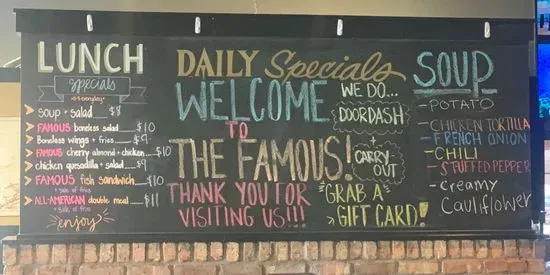 LUNCH
Specials
SOUP + Salad $8
FAMOUS Boneless salad $10
Boneless wings + fries $9
FAMOUS cherry almond + chicken $10
chicken quesadilla + salad $9
FAMOUS fish sandwich $10
+ side of fries
ALL-AMERICAN double meal $11
+ side of fries
enjoy
DAILY Specials
WELCOME
TO
THE FAMOUS!
THANK YOU FOR
VISITING US!!!
WE DO...
DOORDASH
+
CARRY-
OUT
GRAB A
GIFT CARD!
SOUP
- POTATO
- CHICKEN TORTILLA
- FRENCH ONION
- CHILI
- STUFFED PEPPER
- Creamy
Cauliflower